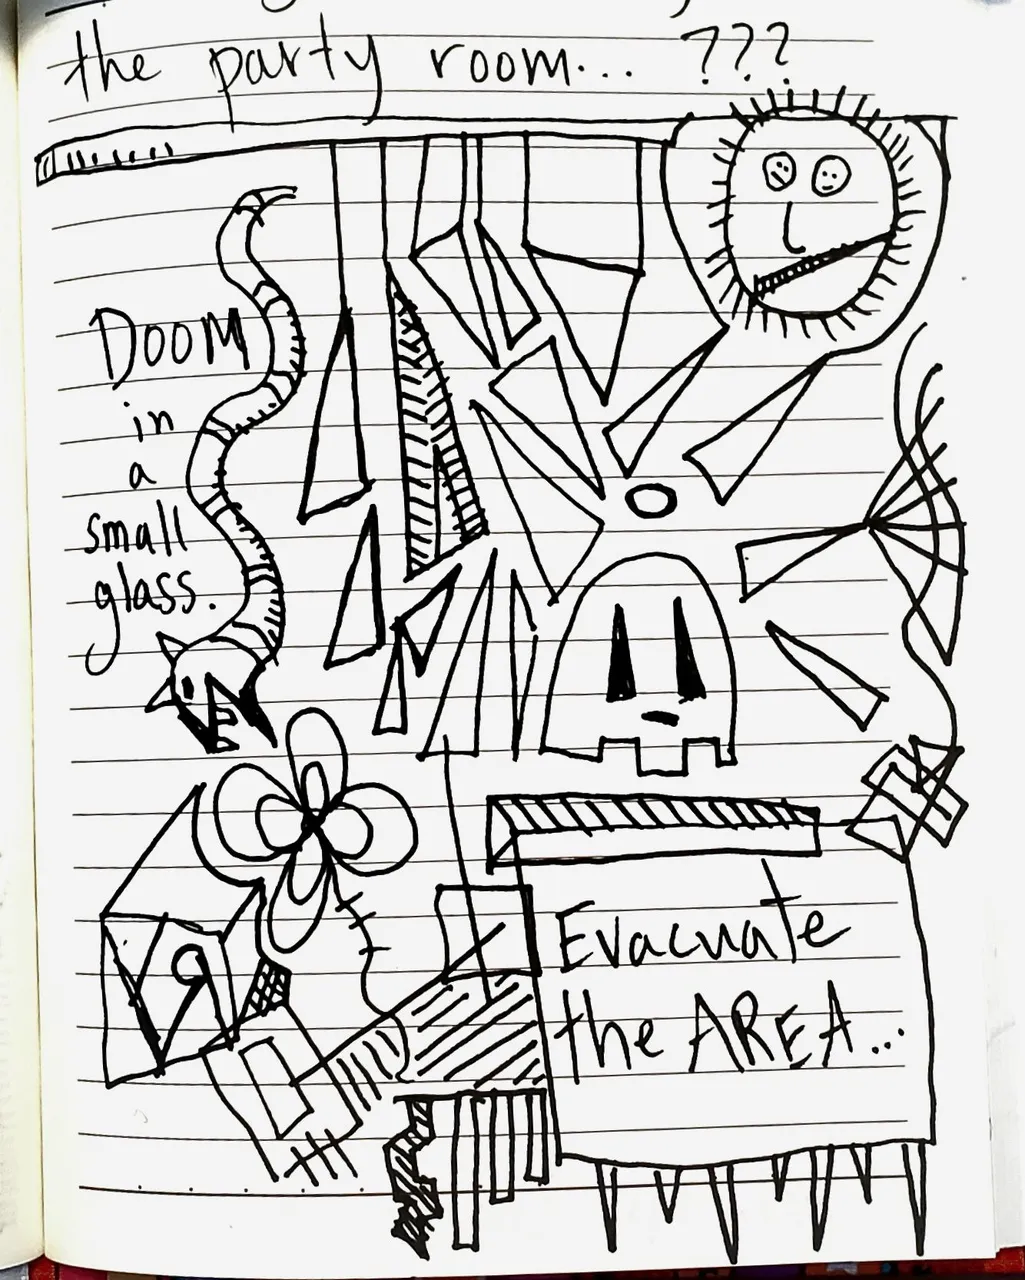 the party room... ???
DOOM
in
a
small
glass.
Evacuate
the AREA...